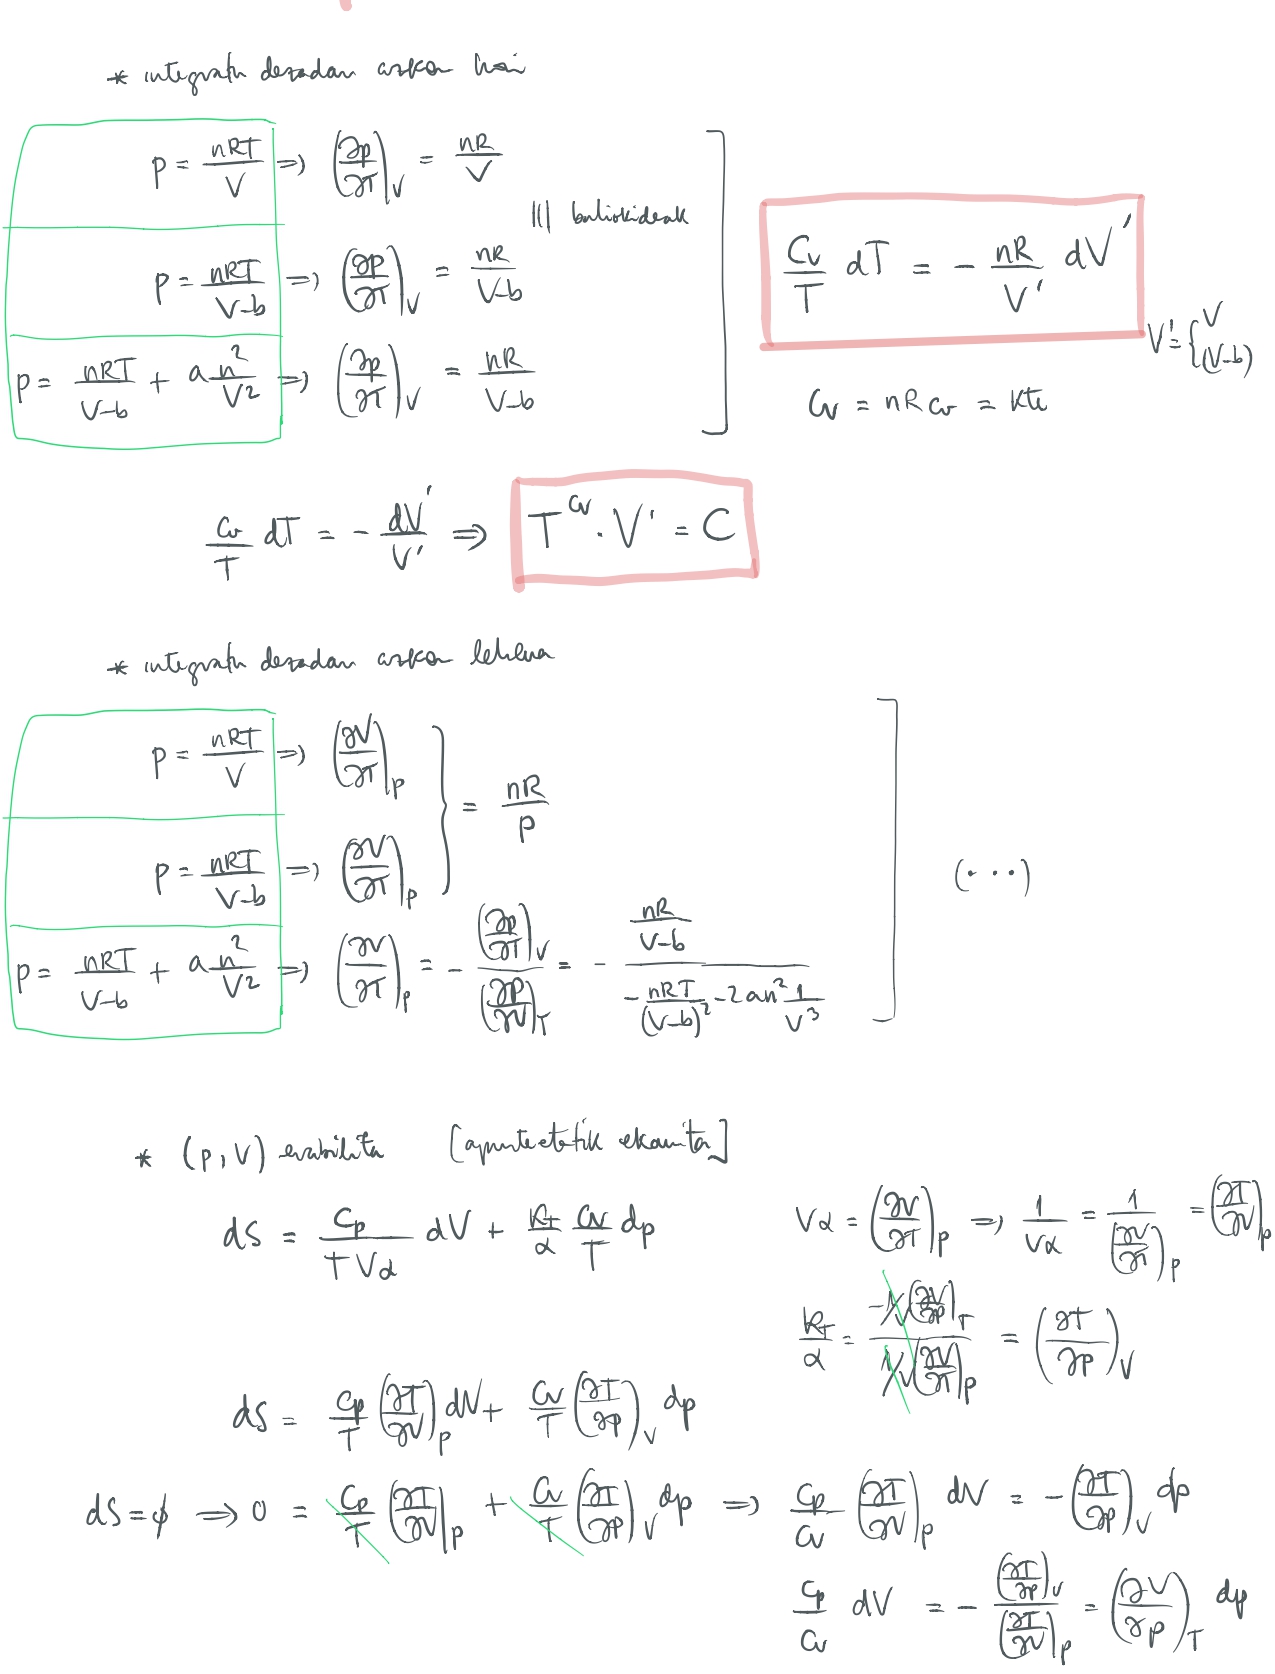 * integratu dezadan askoa hai
p = nRT/V ⇒ (∂p/∂T)_V = nR/V
||| baliokideak
p = nRT/(V-b) ⇒ (∂p/∂T)_V = nR/(V-b)
p = nRT/(V-b) + a n²/V² ⇒ (∂p/∂T)_V = nR/(V-b)
C_V/T dT = - nR/V' dV'
V' = { V (V-b)
C_V = nR c_v = kte
c_v/T dT = - dV'/V' ⇒ T^{c_v} · V' = C
* integratu dezadan askoa lehena
p = nRT/V ⇒ (∂V/∂T)_p
p = nRT/(V-b) ⇒ (∂V/∂T)_p } = nR/p
(···)
p = nRT/(V-b) + a n²/V² ⇒ (∂V/∂T)_p = - (∂p/∂T)_V / (∂p/∂V)_T = - (nR/(V-b)) / (-nRT/(V-b)² - 2an² 1/V³)
* (p,V) erabilita [apunteetatik ekarrita]
dS = C_p/(TVα) dV + k_T/α C_V/T dp
Vα = (∂V/∂T)_p ⇒ 1/(Vα) = 1/(∂V/∂T)_p = (∂T/∂V)_p
k_T/α = -1/V (∂V/∂p)_T / 1/V (∂V/∂T)_p = (∂T/∂p)_V
dS = C_p/T (∂T/∂V)_p dV + C_V/T (∂T/∂p)_V dp
dS = ϕ ⇒ 0 = C_p/T (∂T/∂V)_p + C_V/T (∂T/∂p)_V dp ⇒ C_p/C_V (∂T/∂V)_p dV = - (∂T/∂p)_V dp
C_p/C_V dV = - (∂T/∂p)_V / (∂T/∂V)_p = (∂V/∂p)_T dp